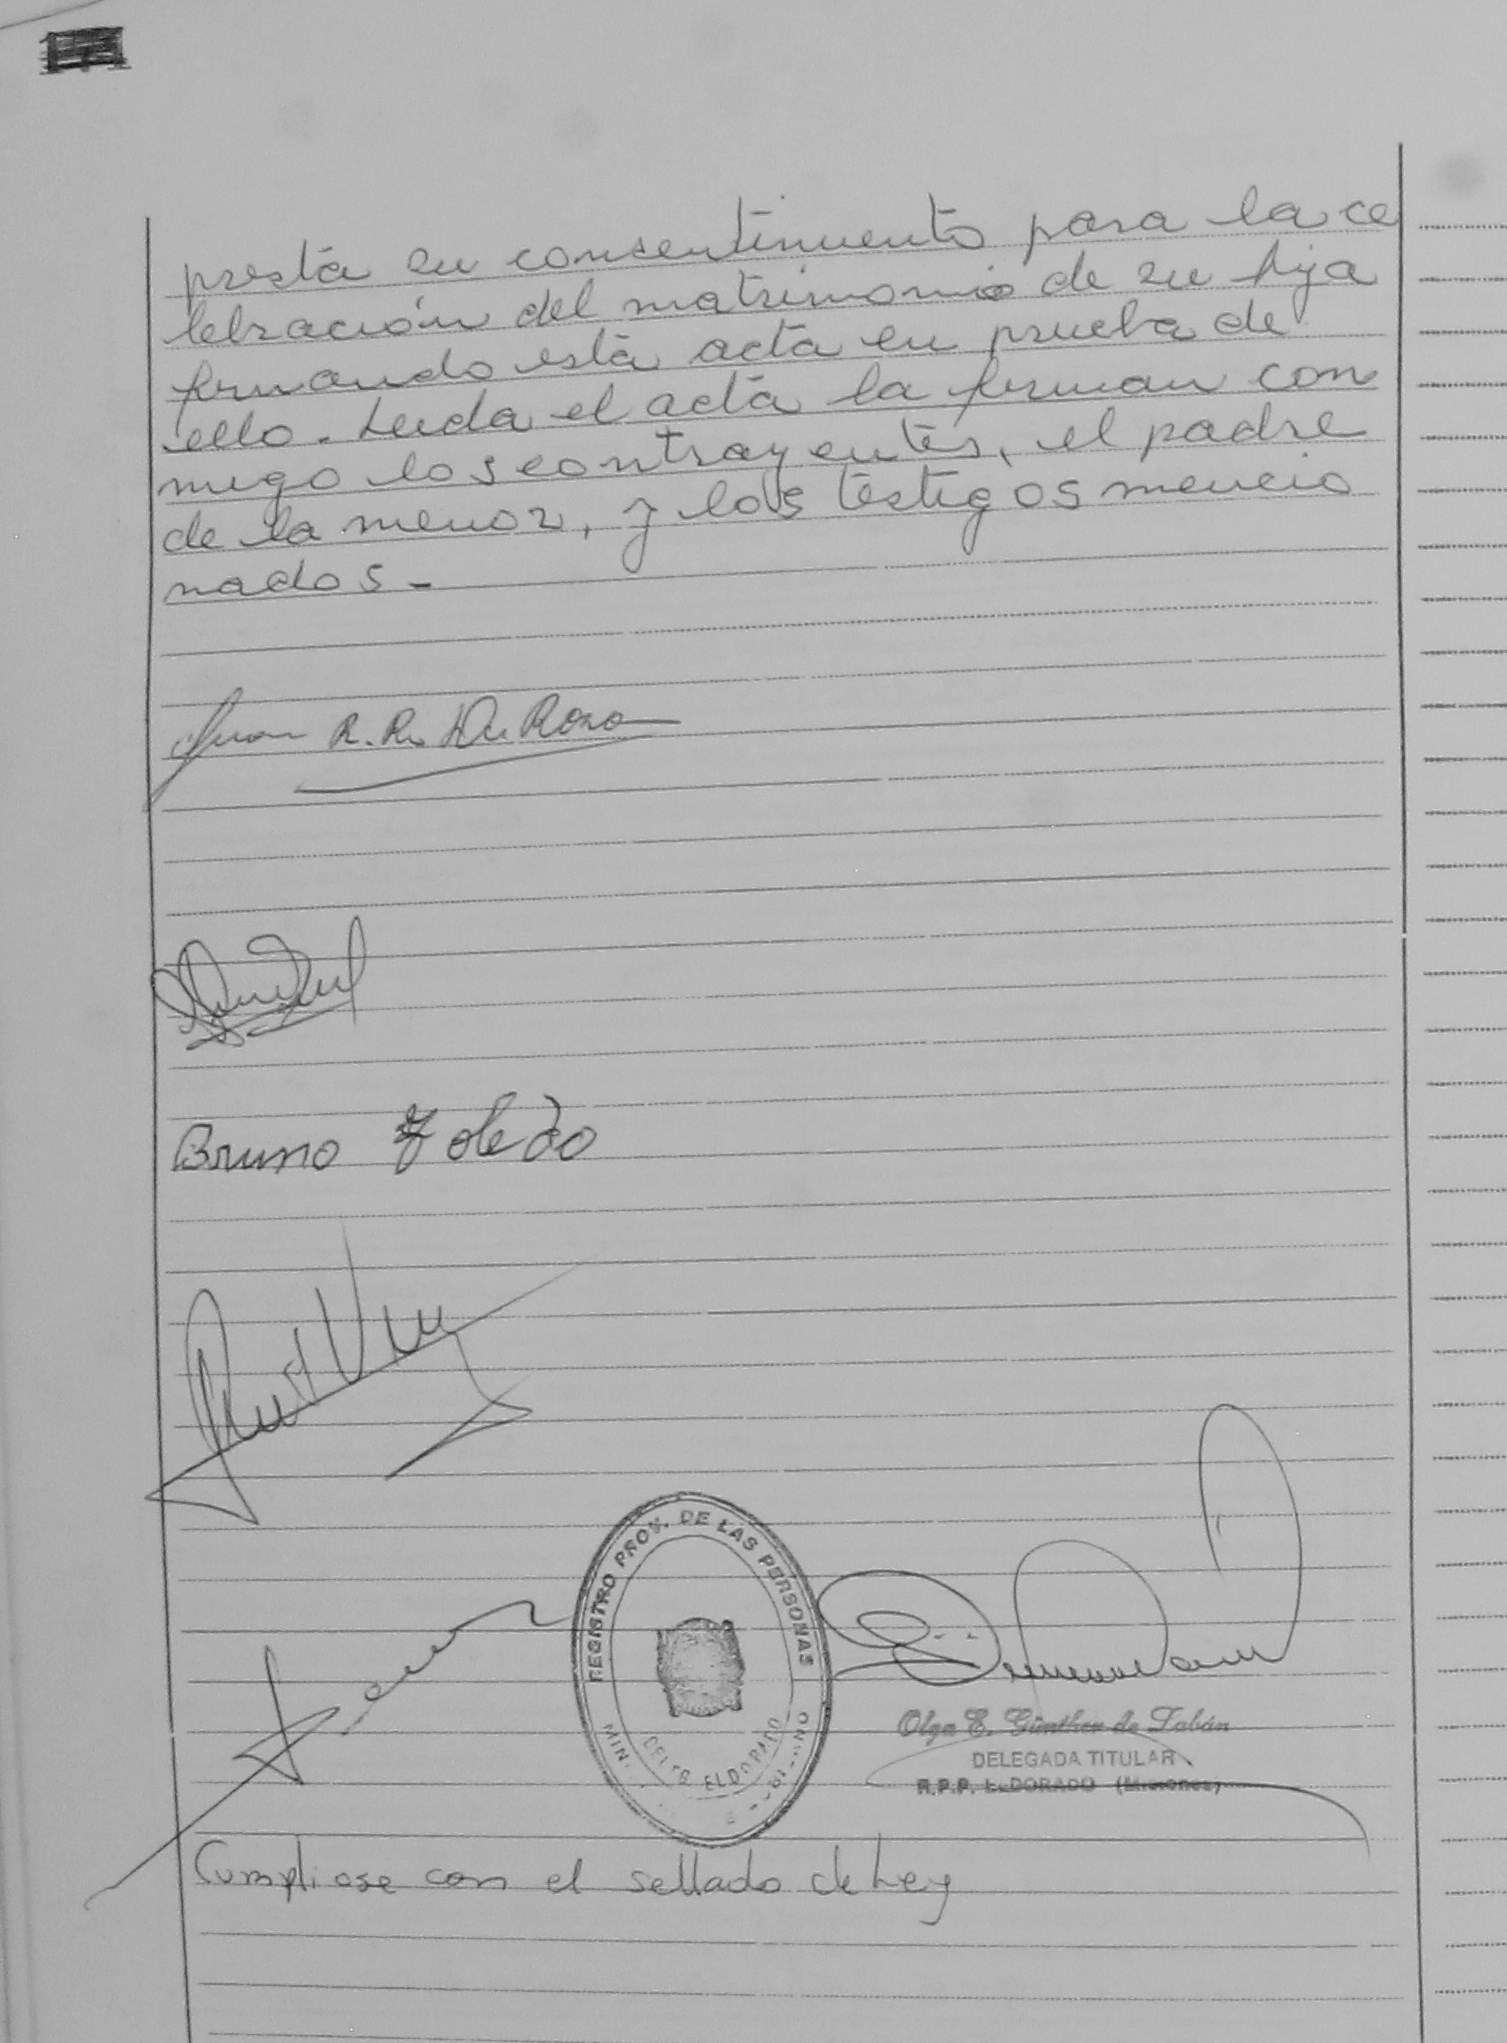 presta su consentimiento para la ce
lebración del matrimonio de su hija
firmando esta acta en prueba de
ello. Leida el acta la firman con
migo los contrayentes, el padre
de la menor, y los testigos mencio
nados-
Juan R. R. Da Rosa
Bruno Toledo
REGISTRO PROV. DE LAS PERSONAS
ELDORADO
Olga E. Günther de Labán
DELEGADA TITULAR
R.P.P. ELDORADO (Misiones)
Cumpliose con el sellado de Ley